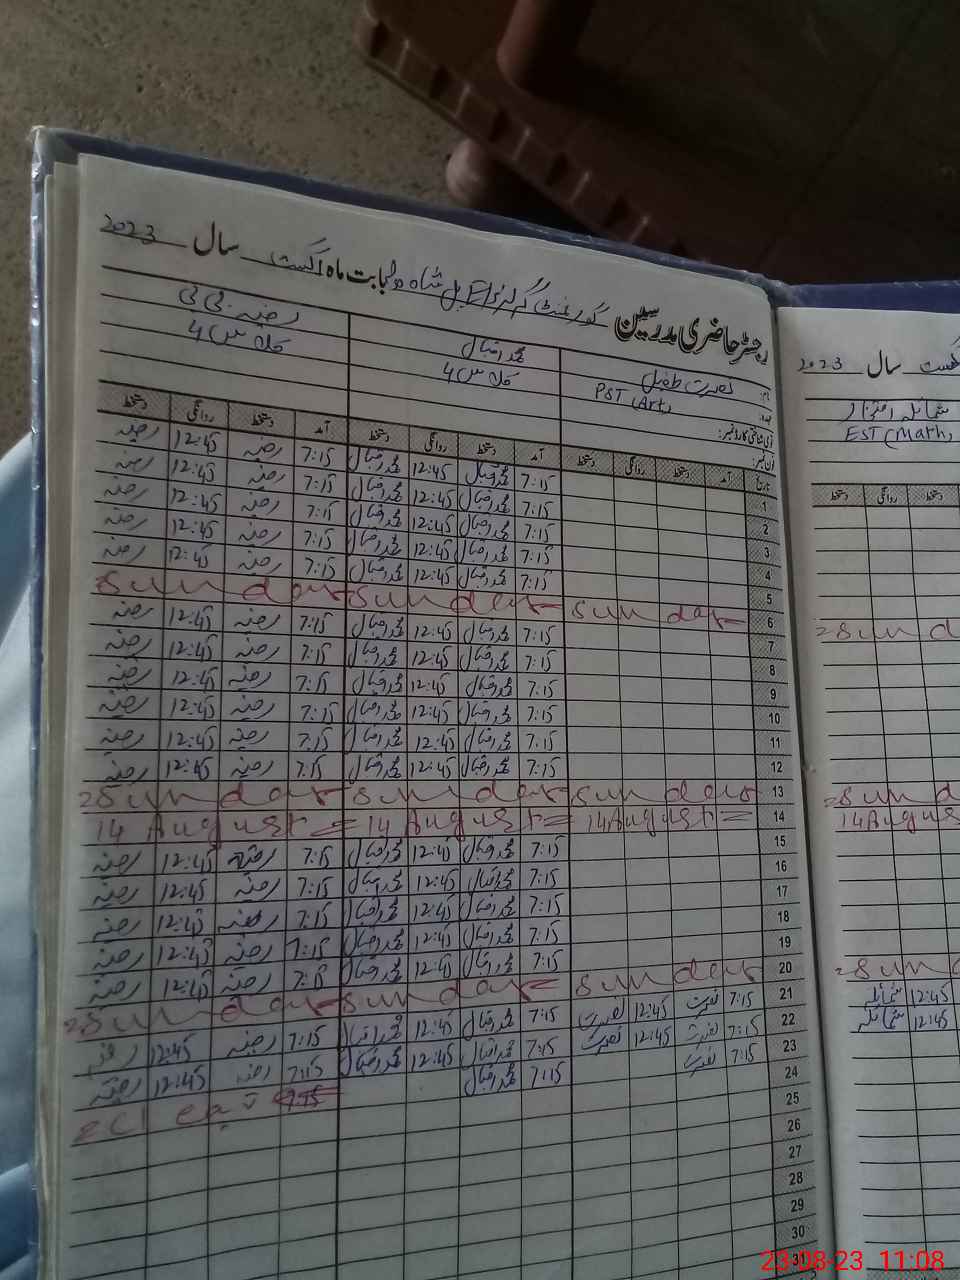 رجسٹر حاضری مدرسین گورنمنٹ گرلز بابت ماہ اگست سال 2023
نام: نصرت طفیل محمد اقبال رضیہ بی بی
عہدہ: PST (Art) کلاس 4 کلاس 4
قومی شناختی کارڈ نمبر:
فون نمبر:
تاریخ آمد دستخط روانگی دستخط آمد دستخط روانگی دستخط آمد دستخط روانگی دستخط
1 7:15 محمد اقبال 12:45 محمد اقبال 7:15 رضیہ 12:45 رضیہ
2 7:15 محمد اقبال 12:45 محمد اقبال 7:15 رضیہ 12:45 رضیہ
3 7:15 محمد اقبال 12:45 محمد اقبال 7:15 رضیہ 12:45 رضیہ
4 7:15 محمد اقبال 12:45 محمد اقبال 7:15 رضیہ 12:45 رضیہ
5 7:15 محمد اقبال 12:45 محمد اقبال 7:15 رضیہ 12:45 رضیہ
6 Sunday Sunday Sunday
7 7:15 محمد اقبال 12:45 محمد اقبال 7:15 رضیہ 12:45 رضیہ
8 7:15 محمد اقبال 12:45 محمد اقبال 7:15 رضیہ 12:45 رضیہ
9 7:15 محمد اقبال 12:45 محمد اقبال 7:15 رضیہ 12:45 رضیہ
10 7:15 محمد اقبال 12:45 محمد اقبال 7:15 رضیہ 12:45 رضیہ
11 7:15 محمد اقبال 12:45 محمد اقبال 7:15 رضیہ 12:45 رضیہ
12 7:15 محمد اقبال 12:45 محمد اقبال 7:15 رضیہ 12:45 رضیہ
13 Sunday Sunday Sunday
14 14 August = 14 August = 14 August =
15 7:15 محمد اقبال 12:45 محمد اقبال 7:15 رضیہ 12:45 رضیہ
16 7:15 محمد اقبال 12:45 محمد اقبال 7:15 رضیہ 12:45 رضیہ
17 7:15 محمد اقبال 12:45 محمد اقبال 7:15 رضیہ 12:45 رضیہ
18 7:15 محمد اقبال 12:45 محمد اقبال 7:15 رضیہ 12:45 رضیہ
19 7:15 محمد اقبال 12:45 محمد اقبال 7:15 رضیہ 12:45 رضیہ
20 Sunday Sunday Sunday
21 7:15 نصرت 12:45 نصرت 7:15 محمد اقبال 12:45 محمد اقبال 7:15 رضیہ 12:45 رضیہ
22 7:15 نصرت 12:45 نصرت 7:15 محمد اقبال 12:45 محمد اقبال 7:15 رضیہ 12:45 رضیہ
23 7:15 نصرت 7:15 محمد اقبال 7:15
24
25
26
27
28
29
30
31
سال 2023
شمائلہ
EST (Math)
دستخط روانگی دستخط
Sun
Sun
14 August
Sun
12:45 شمائلہ
12:45 شمائلہ
23-08-23 11:08